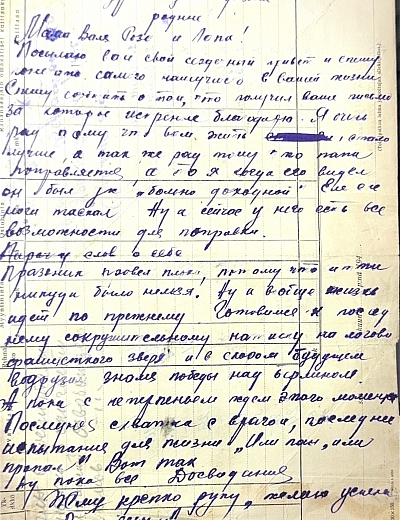 родные
Мама Валя Роза и Лора!
Посылаю Вам свой сердечный привет и спешу
самого наилучшего в Вашей жизни
Спешу сообщить о том, что получил ваше письмо
за которые искренне благодарю. Я очень
рад тому что вам жить стало
лучше, а так же рад тому что папа
поправляется, а то я когда его видел
он был уж "больно доходной" Еле еле
ноги таскал Ну а сейчас у него есть все
возможности для поправки.
Пару слов о себе
Праздник провел плохо, потому что итти
никуда было нельзя. Ну а вобще жизнь
идет по прежнему Готовимся к послед
нему сокрушительному натиску на логово
фашистского зверя и в скором будущем
водрузим знамя победы над Берлином.
А пока с нетерпеньем ждем этого момента
Последняя схватка с врагом, последнее
испытание для жизни "Или пан, или
пропал" Вот так
Ну пока все Досвидания
Жму крепко руку, желаю успеха